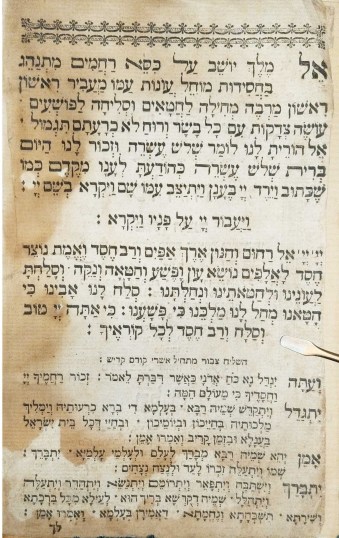 אל מלך יושב על כסא רחמים מתנהג
בחסידות מוחל עונות עמו מעביר ראשון
ראשון מרבה מחילה לחטאים וסליחה לפושעים
עושה צדקות עם כל בשר ורוח לא כרעתם תגמול
אל הורית לנו לומר שלש עשרה וזכור לנו היום
ברית שלש עשרה כהודעת לענו מקדם כמו
שכתוב וירד יי בענן ויתיצב עמו שם ויקרא בשם יי :
ויעבור יי על פניו ויקרא :
יי יי אל רחום וחנון ארך אפים ורב חסד ואמת נוצר
חסד לאלפים נושא עון ופשע וחטאה ונקה וסלחת
לעונינו ולחטאתינו ונחלתנו : סלח לנו אבינו כי
חטאנו מחל לנו מלכנו כי פשענו : כי אתה יי טוב
וסלח ורב חסד לכל קוראיך :
השליח צבור מתחיל אשרי קודם קדיש :
ועתה יגדל נא כח אדני כאשר דברת לאמר : זכור רחמיך יי
וחסדיך כי מעולם המה :
יתגדל ויתקדש שמיה רבא בעלמא די ברא כרעותיה וימליך
מלכותיה בחייכון וביומיכון ובחיי דכל בית ישראל
בעגלא ובזמן קריב ואמרו אמן :
אמן יהא שמיה רבא מברך לעלם ולעלמי עלמיא יתברך :
שמו ויתעלה זכרו לעד ולנצח נצחים :
יתברך וישתבח ויתפאר ויתרומם ויתנשא ויתהדר ויתעלה
ויתהלל שמיה דקודשא בריך הוא לעילא מכל ברכתא
ושירתא תשבחתא ונחמתא דאמירן בעלמא ואמרו אמן :
לך